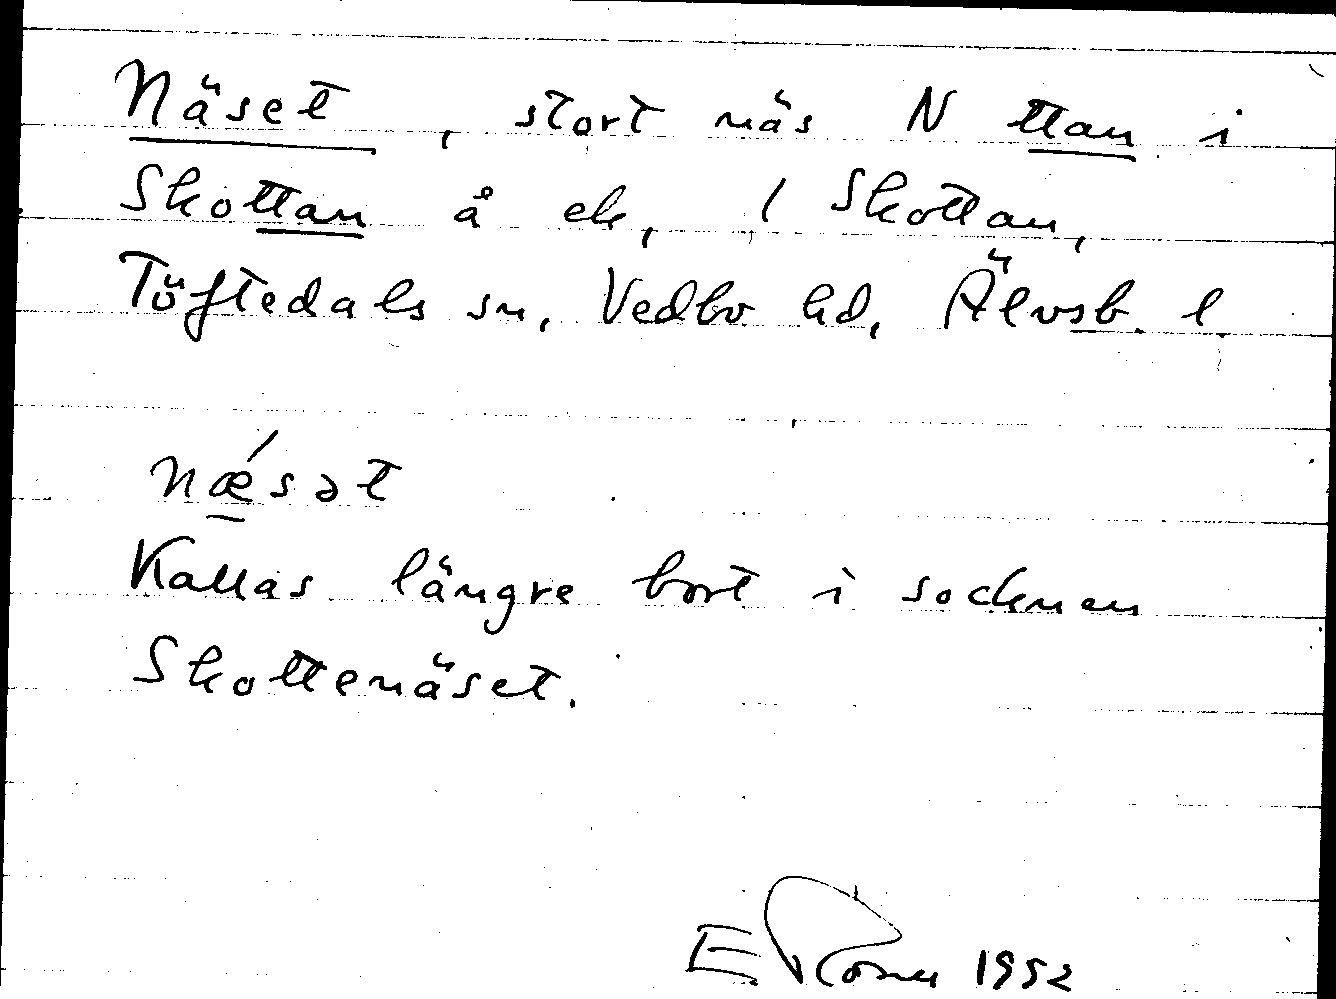 Näset, stort näs N ttan i
Skottan å ek, / Skottan,
Töftedals sn, Vedbo hd, Älvsb. l
næ´sət
Kallas längre bort i socknen
Skottenäset.
E 1952